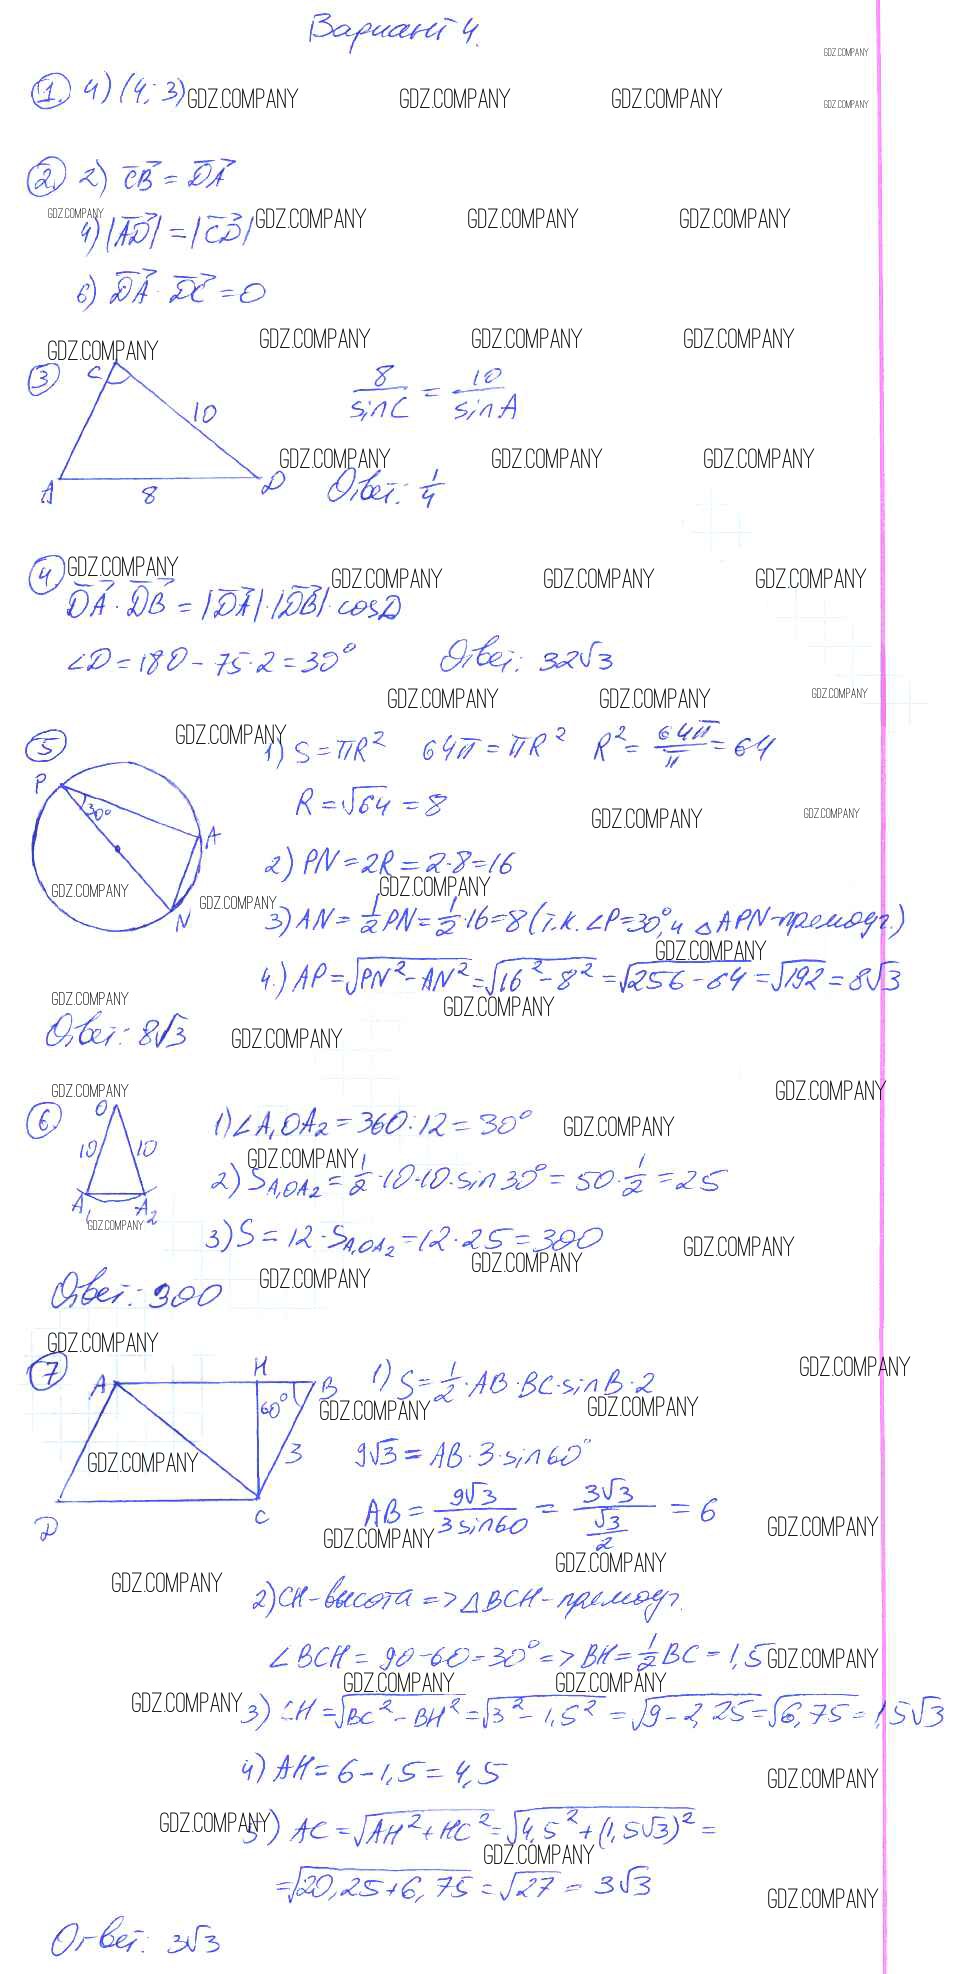 Вариант 4.
GDZ.COMPANY
1. 4) (4; 3) GDZ.COMPANY GDZ.COMPANY GDZ.COMPANY GDZ.COMPANY
2. 2) CB = DA
GDZ.COMPANY GDZ.COMPANY GDZ.COMPANY GDZ.COMPANY
4) |AD| = |CD|
6) DA · DC = 0
GDZ.COMPANY GDZ.COMPANY GDZ.COMPANY GDZ.COMPANY
3 C 10 8/sinC = 10/sinA
GDZ.COMPANY GDZ.COMPANY GDZ.COMPANY
A 8 D Ответ: 1/4
4 GDZ.COMPANY GDZ.COMPANY GDZ.COMPANY GDZ.COMPANY
DA · DB = |DA| · |DB| · cosD
∠D = 180 - 75·2 = 30° Ответ: 32√3
GDZ.COMPANY GDZ.COMPANY GDZ.COMPANY
5 GDZ.COMPANY 1) S = πR² 64π = πR² R² = 64π/π = 64
P 30° A N
R = √64 = 8
GDZ.COMPANY GDZ.COMPANY
2) PN = 2R = 2·8 = 16
GDZ.COMPANY GDZ.COMPANY GDZ.COMPANY
3) AN = 1/2 PN = 1/2 · 16 = 8 (т.к. ∠P = 30°, и △APN-прямоуг.)
GDZ.COMPANY
4.) AP = √PN² - AN² = √16² - 8² = √256 - 64 = √192 = 8√3
GDZ.COMPANY GDZ.COMPANY
Ответ: 8√3 GDZ.COMPANY
GDZ.COMPANY GDZ.COMPANY
6 O 10 10 A₁ A₂
1) ∠A₁OA₂ = 360:12 = 30° GDZ.COMPANY
GDZ.COMPANY
2) SA₁OA₂ = 1/2 · 10·10·sin30° = 50·1/2 = 25
GDZ.COMPANY
3) S = 12·SA₁OA₂ = 12·25 = 300 GDZ.COMPANY
GDZ.COMPANY GDZ.COMPANY
Ответ: 300
GDZ.COMPANY GDZ.COMPANY
7 A H B 60° 3 D C
1) S = 1/2 · AB · BC · sinB · 2
GDZ.COMPANY GDZ.COMPANY
9√3 = AB · 3 · sin60°
GDZ.COMPANY
AB = 9√3/3sin60 = 3√3/(√3/2) = 6
GDZ.COMPANY GDZ.COMPANY
GDZ.COMPANY GDZ.COMPANY
2) CH-высота => △BCH-прямоуг.
∠BCH = 90-60 = 30° => BH = 1/2 BC = 1,5 GDZ.COMPANY
GDZ.COMPANY GDZ.COMPANY GDZ.COMPANY
3) CH = √BC² - BH² = √3² - 1,5² = √9 - 2,25 = √6,75 = 1,5√3
4) AH = 6 - 1,5 = 4,5 GDZ.COMPANY
GDZ.COMPANY
5) AC = √AH² + HC² = √4,5² + (1,5√3)² =
GDZ.COMPANY
= √20,25 + 6,75 = √27 = 3√3
GDZ.COMPANY
Ответ: 3√3